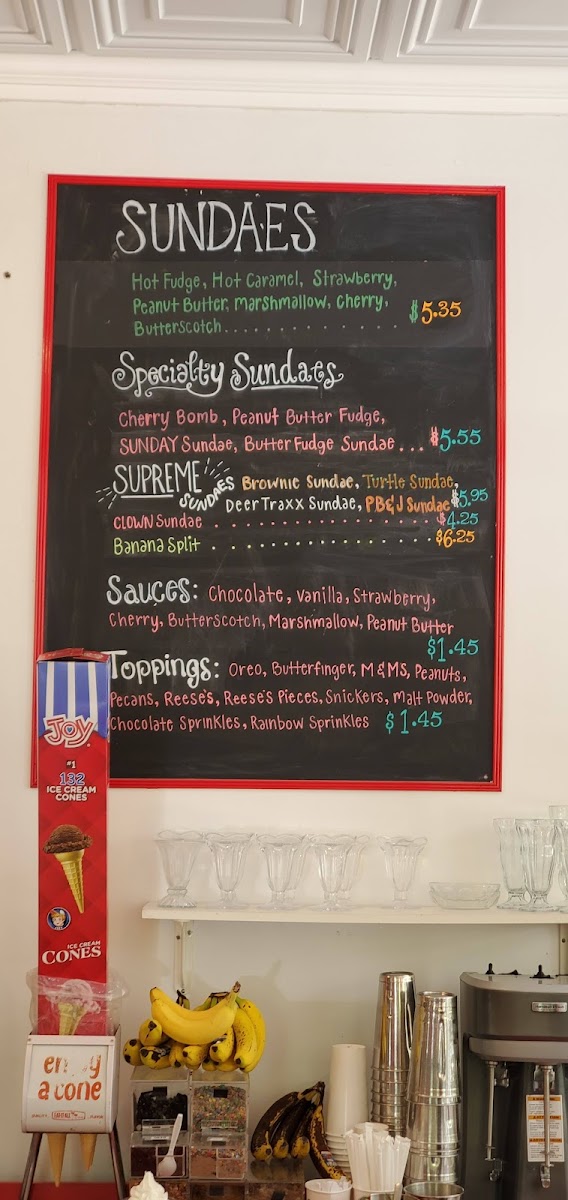 SUNDAES
Hot Fudge, Hot Caramel, Strawberry,
Peanut Butter, Marshmallow, Cherry,
Butterscotch.............. $5.35
Specialty Sundaes
Cherry Bomb, Peanut Butter Fudge,
SUNDAY Sundae, Butter Fudge Sundae... $5.55
SUPREME SUNDAES Brownie Sundae, Turtle Sundae,
Deer Traxx Sundae, PB&J Sundae $5.95
CLOWN Sundae ................ $4.25
Banana Split ................ $6.25
Sauces: Chocolate, Vanilla, Strawberry,
Cherry, Butterscotch, Marshmallow, Peanut Butter
$1.45
Toppings: Oreo, Butterfinger, M&MS, Peanuts,
Pecans, Reese's, Reese's Pieces, Snickers, Malt Powder,
Chocolate Sprinkles, Rainbow Sprinkles $1.45
JOY
#1
132
ICE CREAM
CONES
ICE CREAM
CONES
a cone